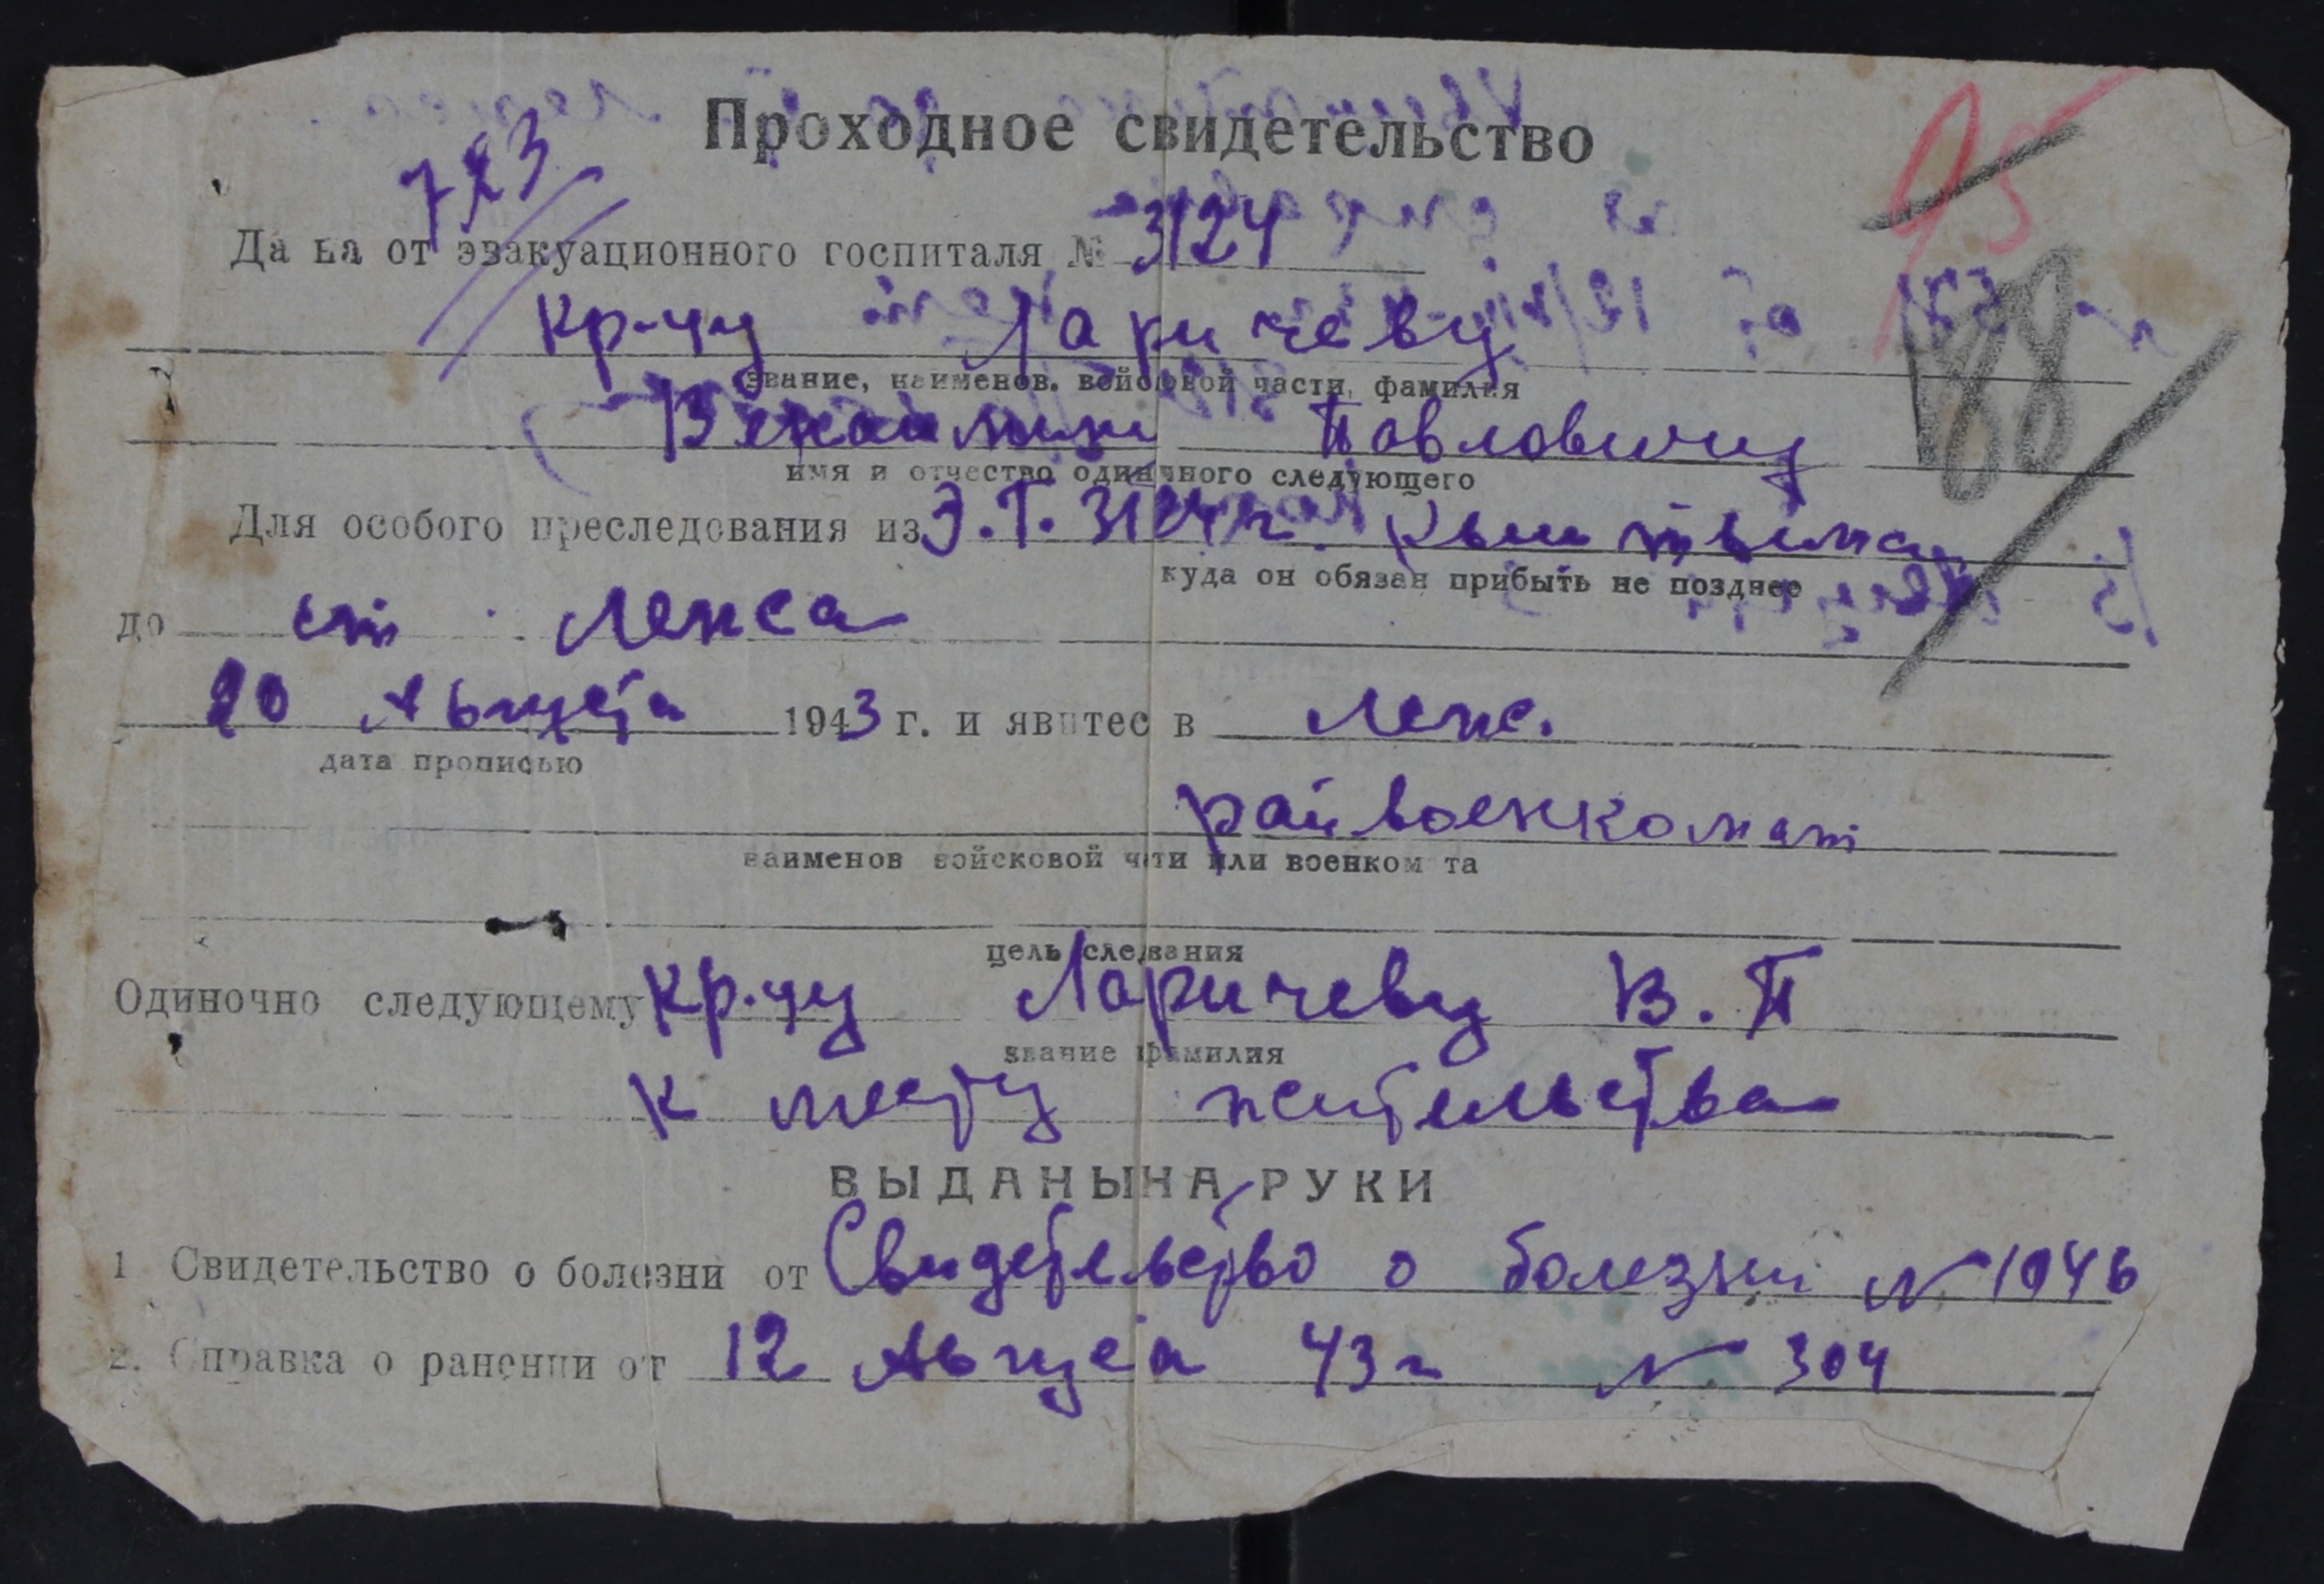 Проходное свидетельство
95
723
Да на от эвакуационного госпиталя № 3124
88
кр-цу Ларичеву
звание, наименов. войсковой части, фамилия
Павловичу
имя и отчество одиночного следующего
Для особого преследования из Э.Г. 3124 г. Кыштыма
куда он обязан прибыть не позднее
до ст. Менса
20 Августа 1943 г. и явитес в Менс.
дата прописью
райвоенкомат
наименов войсковой чати или военком та
цель следвания
Одиночно следующему кр.цу Ларичеву В. П
звание фамилия
к месту жительства
ВЫДАНЫ НА РУКИ
1 Свидетельство о болезни от Свидетельство о болезни № 1046
2. Справка о ранении от 12 Августа 43 г № 304